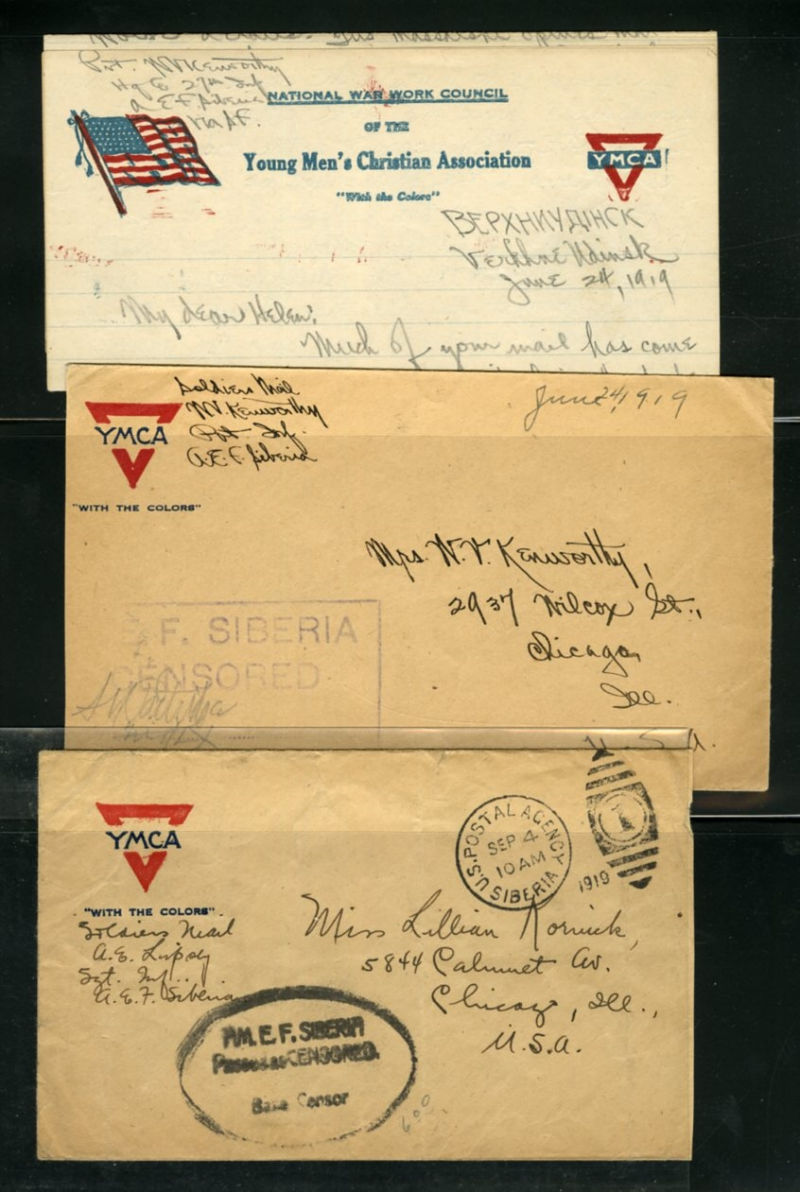 Pvt. W V Kenworthy
Hq Co 27th Inf
A E F Siberia
NATIONAL WAR WORK COUNCIL
OF THE
Young Men's Christian Association
"With the Colors"
YMCA
ВЕРХНИУДІНСК
Verkhne Udinsk
June 24, 1919
My dear Helen:
Much of your mail has come
YMCA
"WITH THE COLORS"
Soldiers Mail
W V Kenworthy
Pvt Inf.
A.E.F. Siberia
June 24, 1919
Mrs. W. V. Kenworthy,
2937 Wilcox St.,
Chicago,
Ill.
U.S.A.
F. SIBERIA
CENSORED
YMCA
"WITH THE COLORS"
Soldiers Mail
A.E.
Sgt. Inf.
A.E.F. Siberia
U.S. POSTAL AGENCY
SEP 4
10 AM
SIBERIA
1919
1
Miss Lillian
5844 Calumet Av.
Chicago, Ill.,
U.S.A.
AM. E. F. SIBERIA
Passed as CENSORED.
Base Censor
600